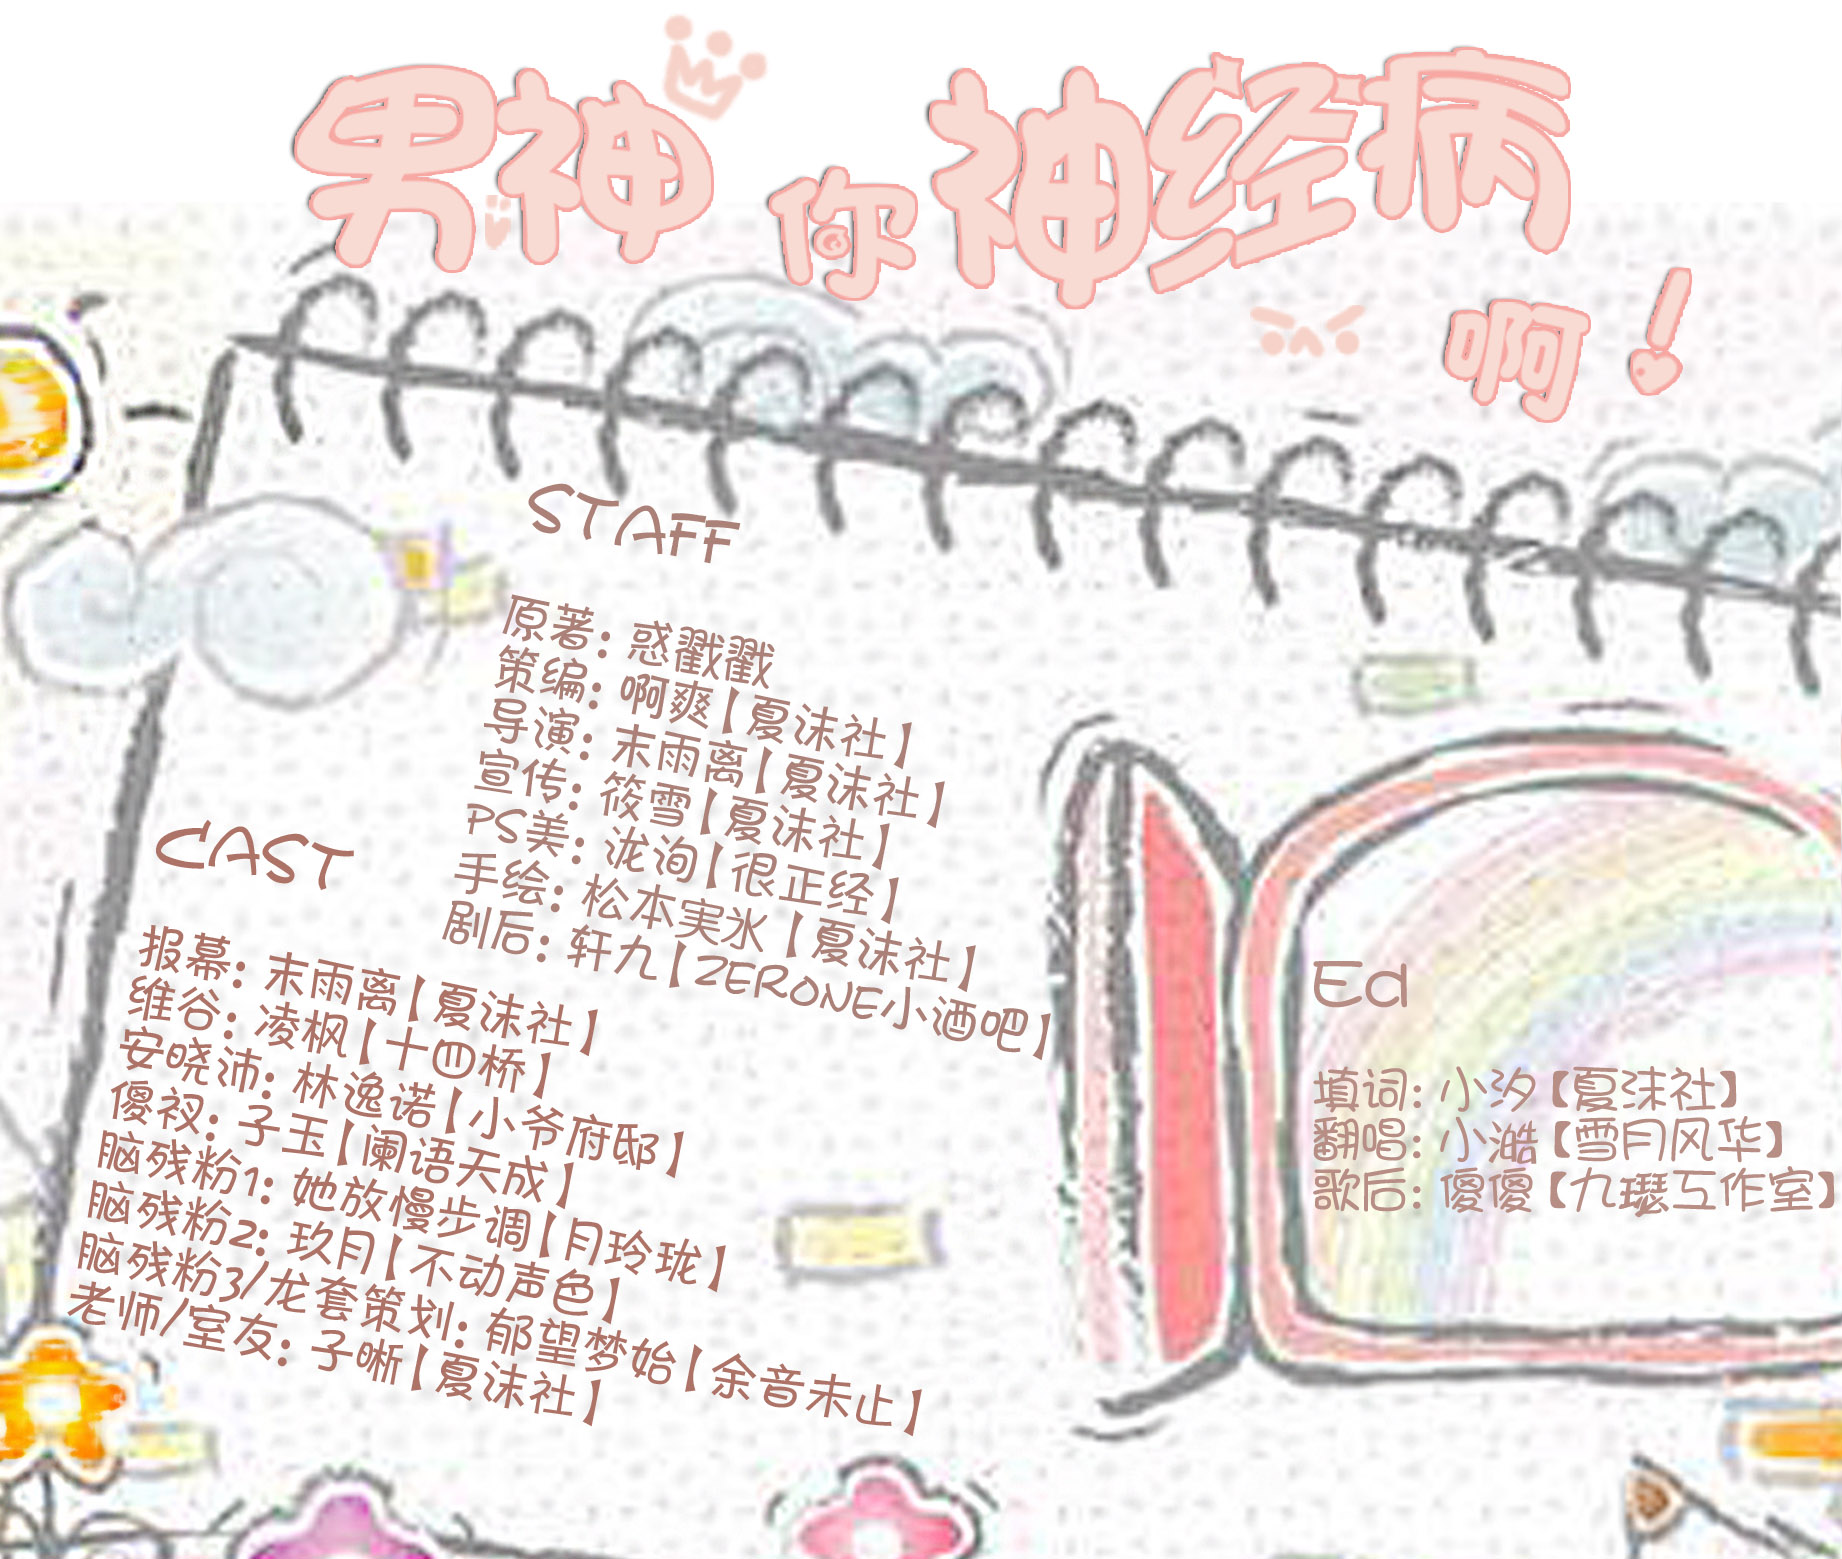 男神你神经病啊！
STAFF
原著：惑戳戳
策编：啊爽【夏沫社】
导演：末雨离【夏沫社】
宣传：筱雪【夏沫社】
PS美：泷洵【很正经】
手绘：松本実氷【夏沫社】
剧后：轩九【ZERONE小酒吧】
CAST
报幕：末雨离【夏沫社】
维谷：凌枫【十四桥】
安晓沛：林逸诺【小爷府邸】
傻衩：子玉【阑语天成】
脑残粉1：她放慢步调【月玲珑】
脑残粉2：玖月【不动声色】
脑残粉3/龙套策划：郁望梦始【余音未止】
老师/室友：子晰【夏沫社】
Ed
填词：小汐【夏沫社】
翻唱：小澔【雪月风华】
歌后：傻傻【九璱工作室】